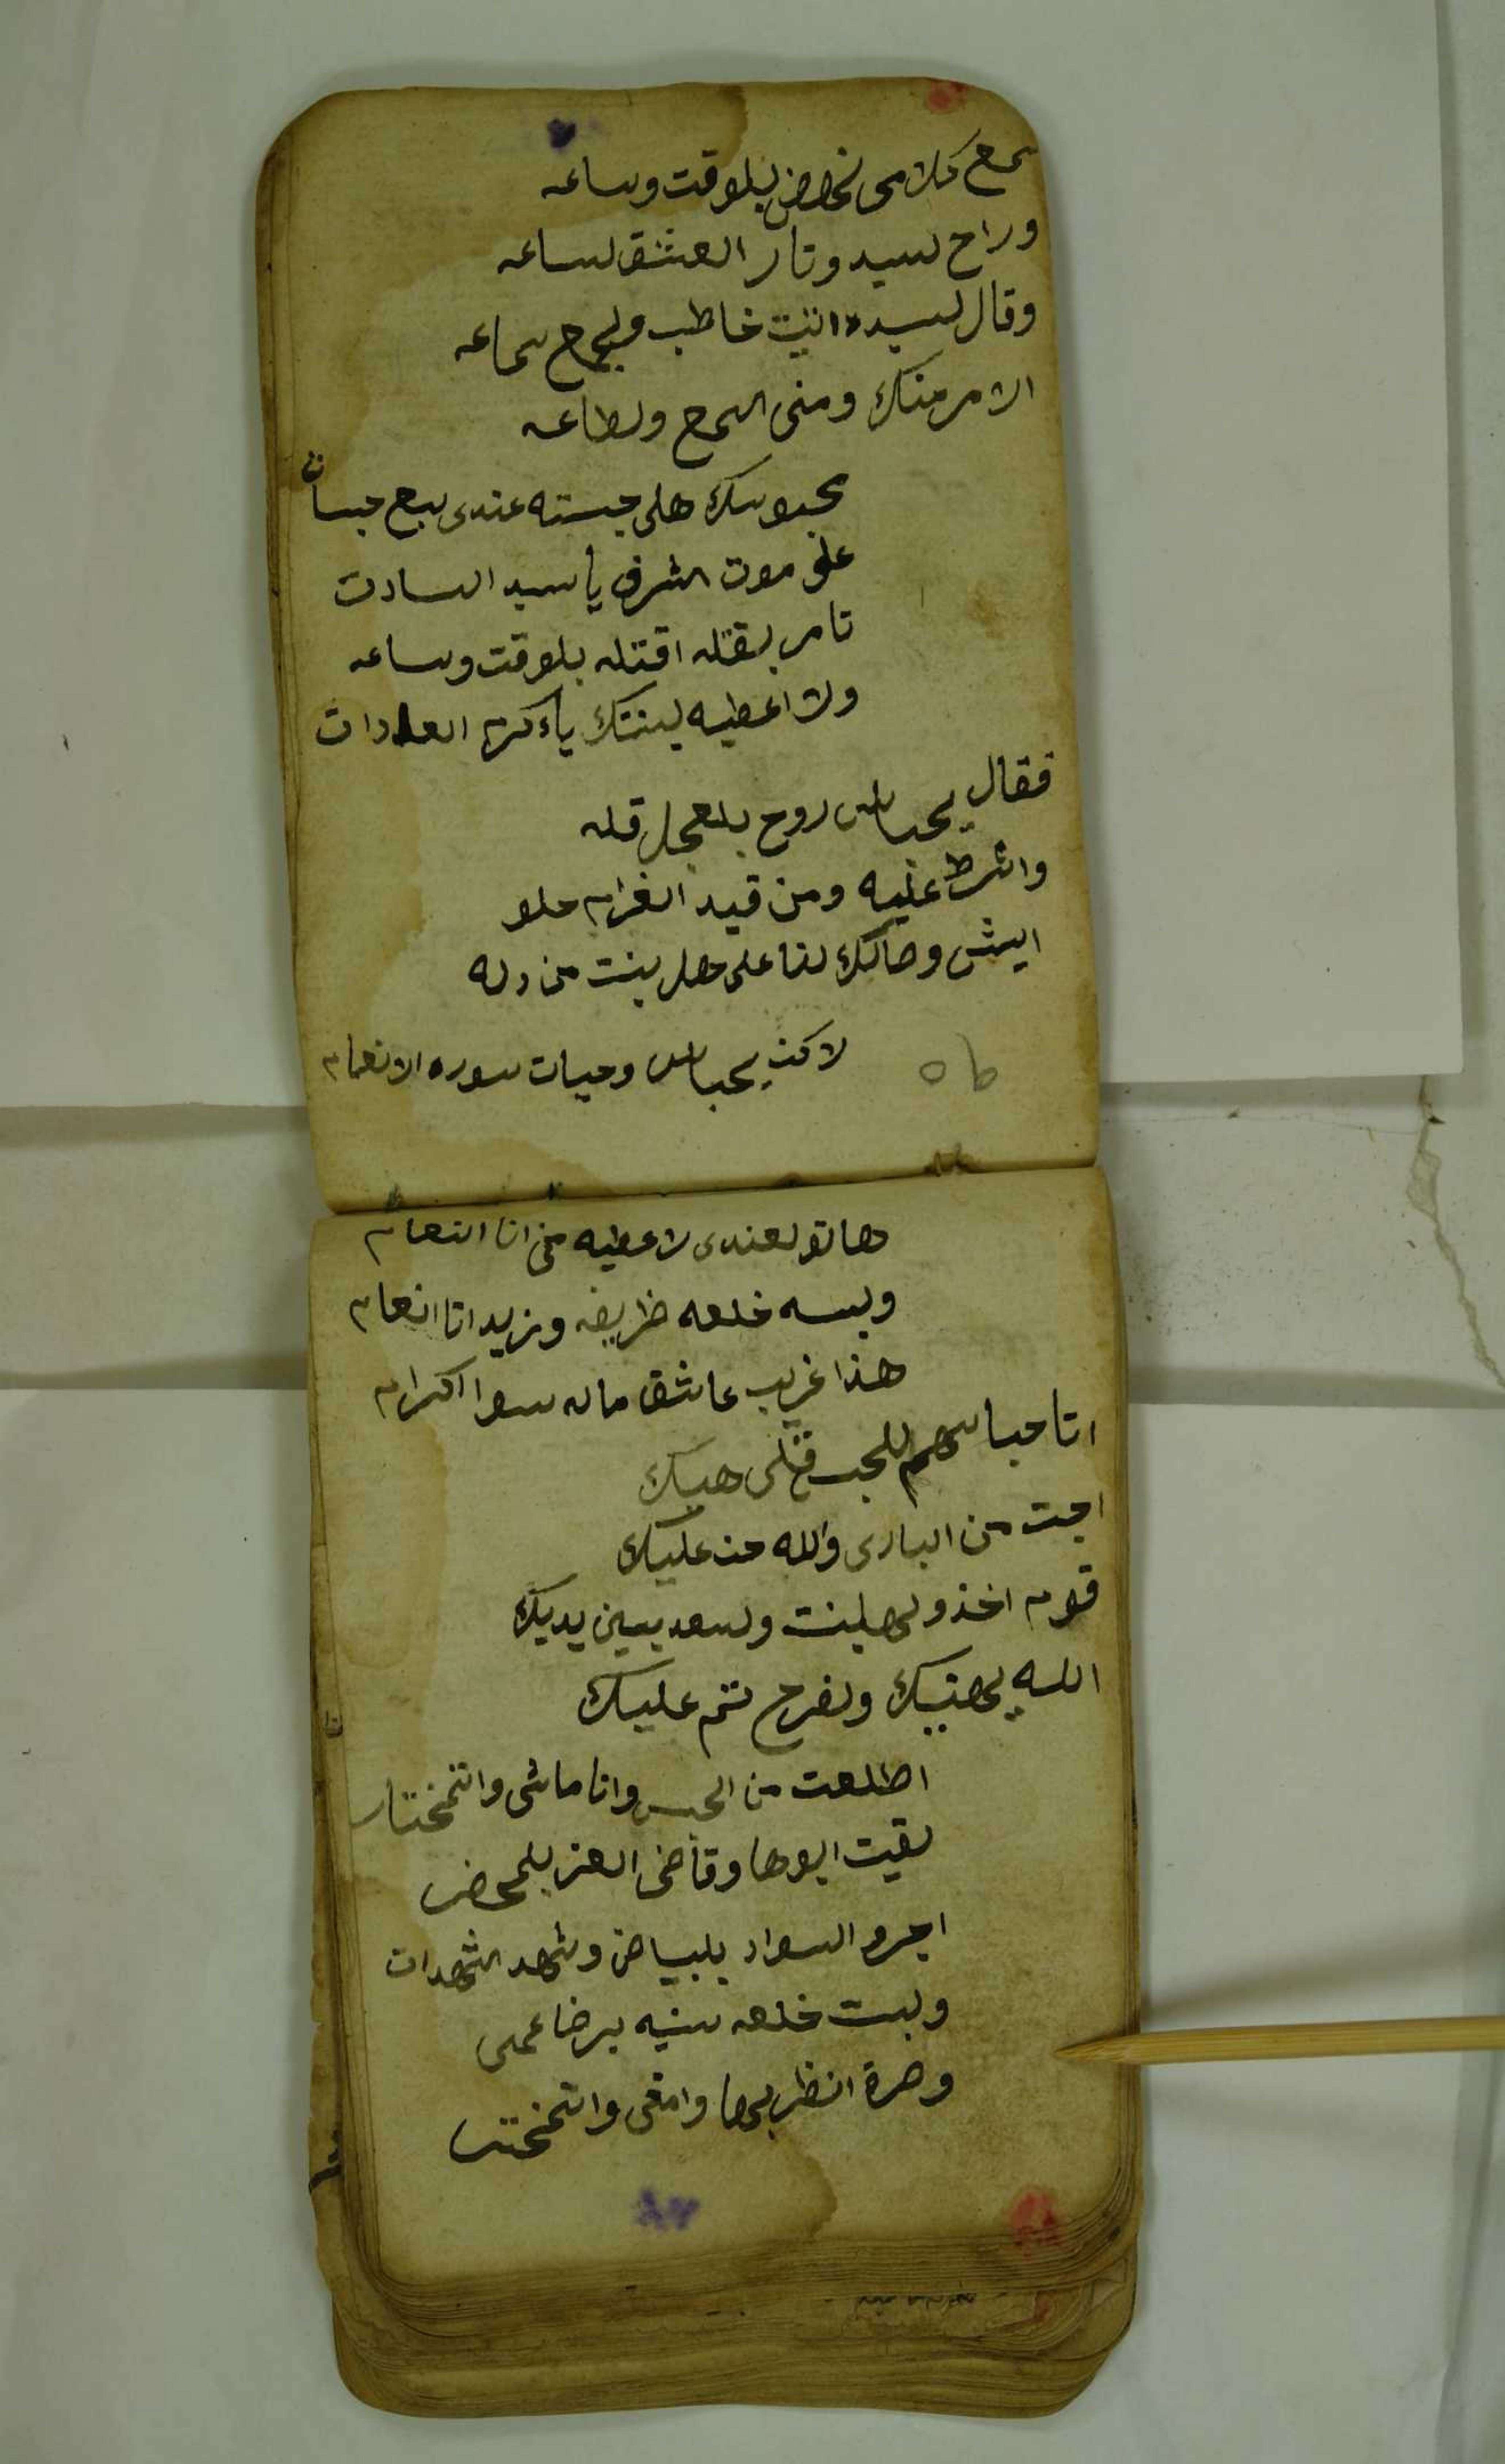 سمع كلامى نحوض بلوقت وساعه
وراح لسيد وتار العشق لساعه
وقال لسيده انيت خاطب وليجمع جماعه
الامر منك ومنى السمع ولطاعه
محبوسك هلى حبسته عندى سبع حبسات
على موت اشرف يا سيد السادت
تامر بقتله اقتله بلوقت وساعه
ولا اعطيه لبنتك ياكريم العادات
فقال يحباس روح بلعجل قله
واشرط عليه ومن قيد الغرام حلو
ايش وصالك لنا على وصل بنت من دله
لاكن يحباس وحيات سوره الانعام
هاتو لعندى لاعطيه من انا انعام
ولبسه خلعه ظريفه ونزيد انا انعام
هذا غريب عاشق ماله سوا اكرام
اتا حباسهم للحبس قتلى هيك
اجت من البارى والله حن عليك
قوم اخذ ولهلبنت ولسعد بين يديك
الله يهنيك ولفرح تتم عليك
اطلعت من الحبس وانا ماشى واتمختار
لقيت ابوها وقاضى العز بلمحضر
اجرو السواد بلبياض وشهد الشهدات
ولبست خلعه سنيه برضا عمى
وصرة انظر بها وامشى واتمختر